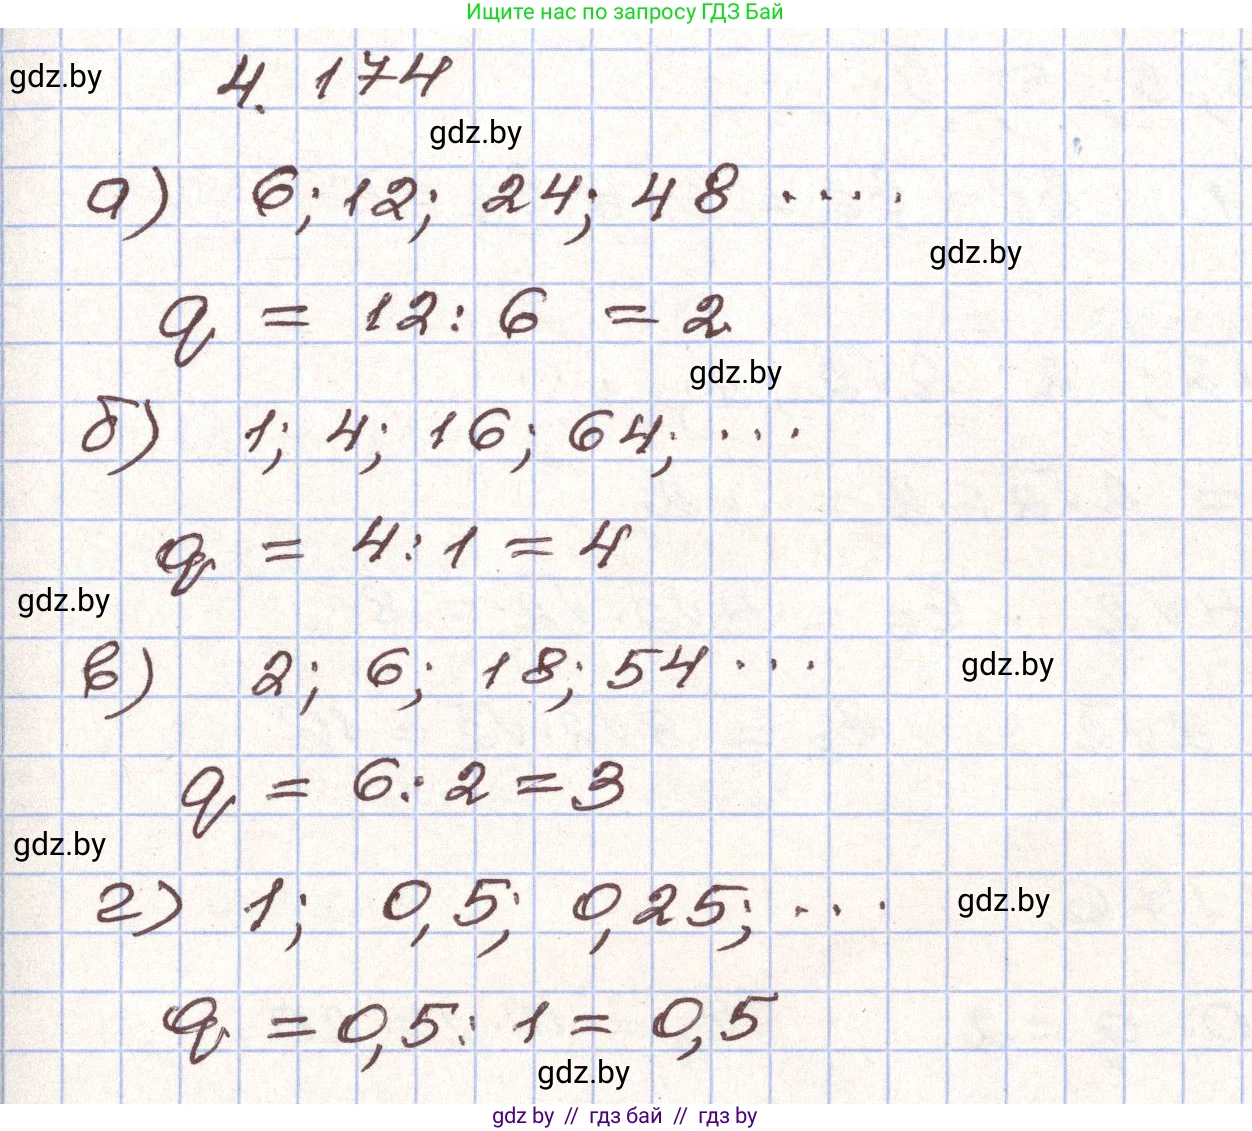 Ищите нас по запросу ГДЗ Бай
gdz.by 4. 174
gdz.by
а) 6; 12; 24; 48 ....
gdz.by
q = 12 : 6 = 2
gdz.by
б) 1; 4; 16; 64; ...
q = 4 : 1 = 4
gdz.by
в) 2; 6; 18; 54 ... gdz.by
q = 6 : 2 = 3
gdz.by
г) 1; 0,5; 0,25; ... gdz.by
q = 0,5 : 1 = 0,5
gdz.by
gdz by // гдз бай // гдз by